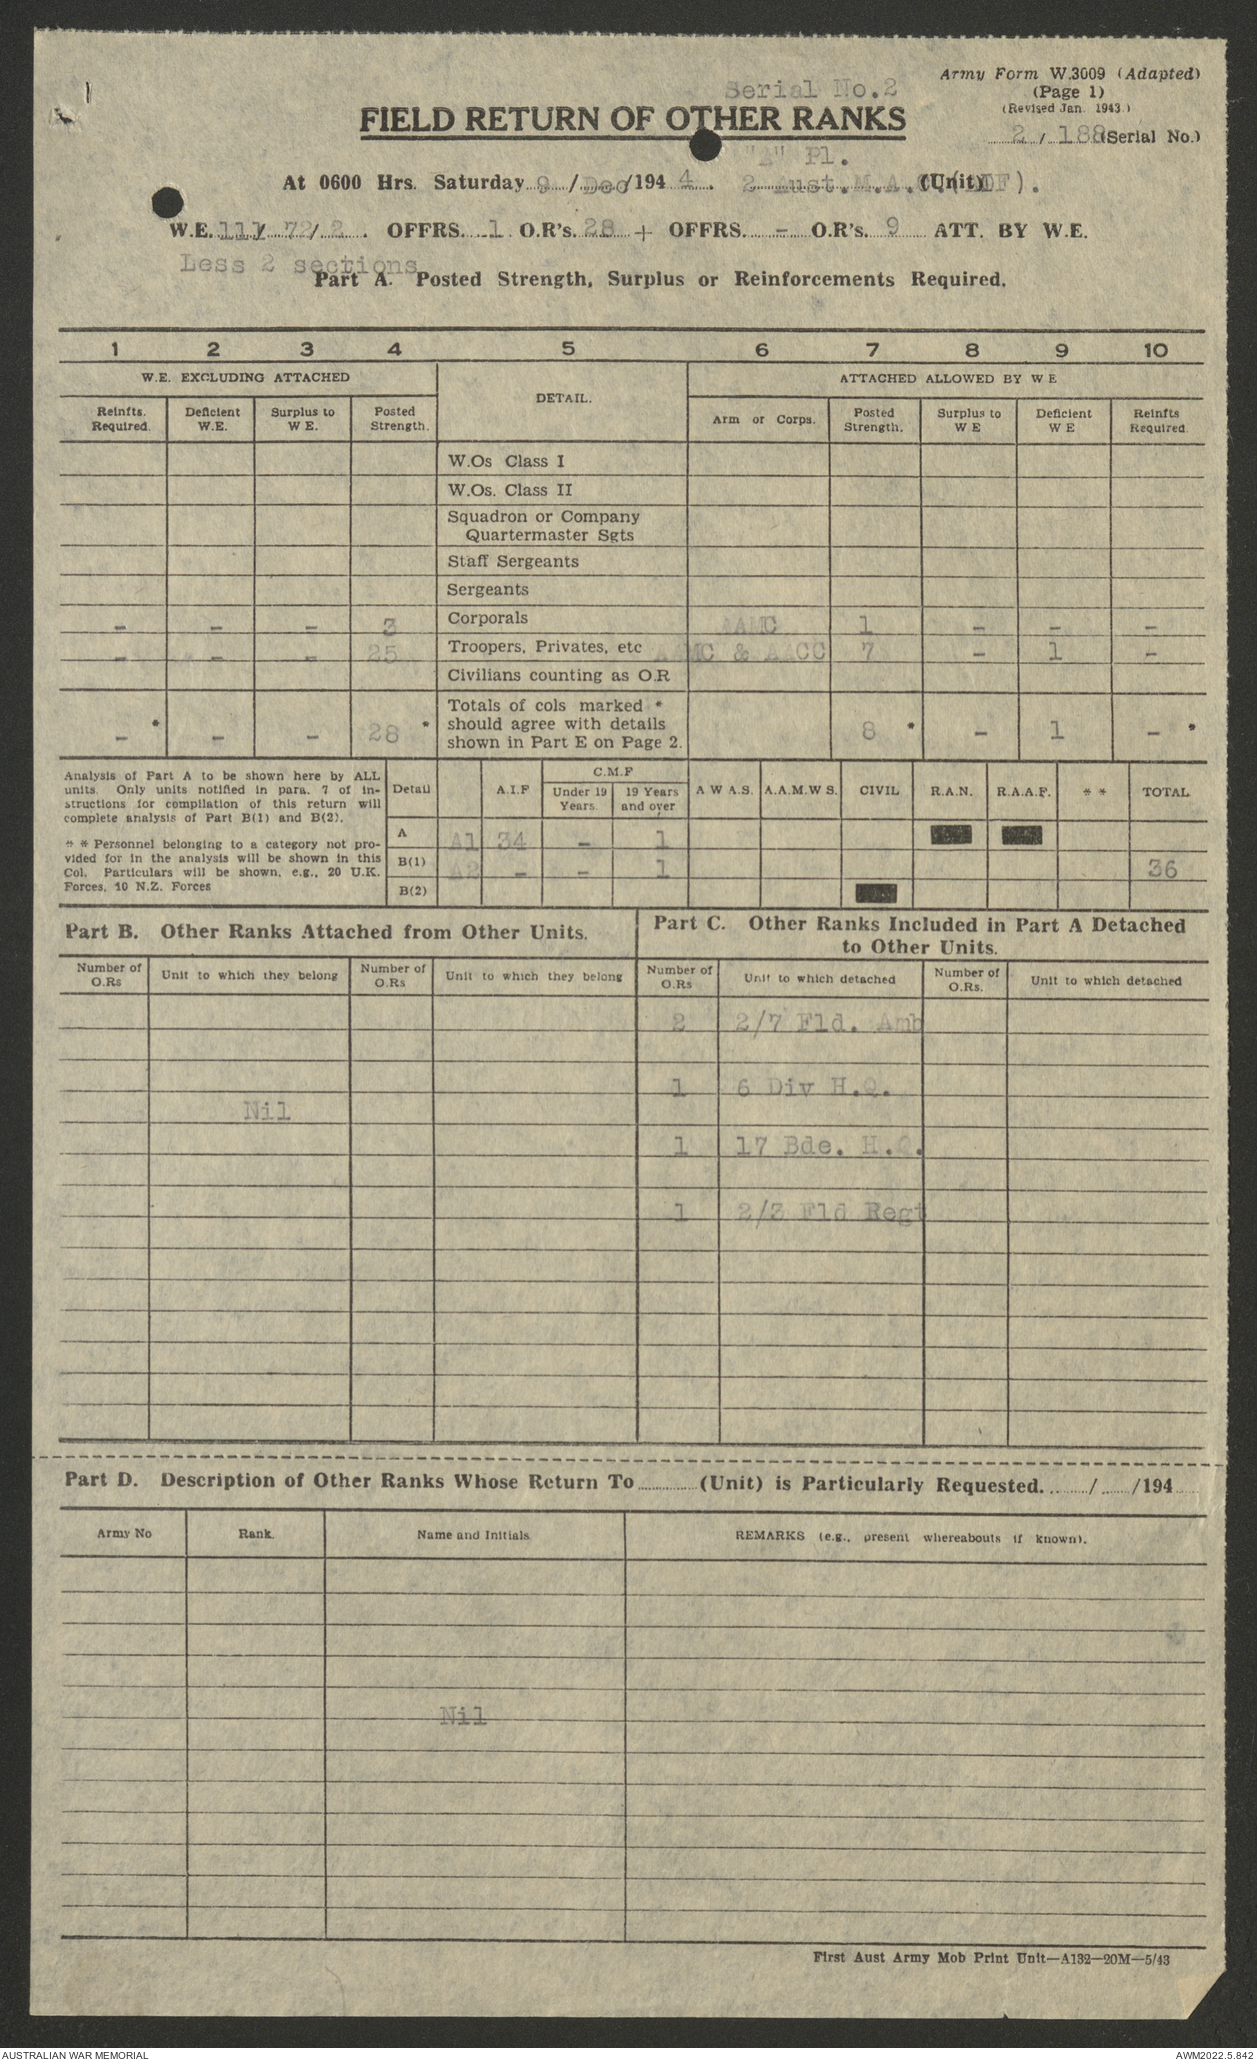 Serial No.2
Army Form W.3009 (Adapted)
(Page 1)
(Revised Jan. 1943.)
FIELD RETURN OF OTHER RANKS
2 / 188 (Serial No.)
"A" Pl.
At 0600 Hrs. Saturday 9 / Dec /194 4. 2 Aust.M.A.C. (Unit) ).
W.E. 111/ 72/ 2. OFFRS. 1 O.R's. 28 + OFFRS. - O.R's. 9 ATT. BY W.E.
Less 2 sections
Part A. Posted Strength, Surplus or Reinforcements Required.
1 2 3 4 5 6 7 8 9 10
W.E. EXCLUDING ATTACHED DETAIL. ATTACHED ALLOWED BY W E
Reinfts. Required. Deficient W.E. Surplus to W E. Posted Strength. Arm or Corps. Posted Strength. Surplus to W E Deficient W E Reinfts Required.
W.Os Class I
W.Os. Class II
Squadron or Company
Quartermaster Sgts
Staff Sergeants
Sergeants
- - - 3 Corporals AAMC 1 - - -
- - - 25 Troopers, Privates, etc AAMC & AACC 7 - 1 -
Civilians counting as O.R
Totals of cols marked *
should agree with details
shown in Part E on Page 2.
- * - - 28 * 8 * - 1 - *
Analysis of Part A to be shown here by ALL
units. Only units notified in para. 7 of in-
structions for compilation of this return will
complete analysis of Part B(1) and B(2).
* * Personnel belonging to a category not pro-
vided for in the analysis will be shown in this
Col. Particulars will be shown, e.g., 20 U.K.
Forces, 10 N.Z. Forces
Detail A.I.F C.M.F Under 19 Years. 19 Years and over A W A.S. A.A.M.W S. CIVIL R.A.N. R.A.A.F. * * TOTAL
A A1 34 - 1
B(1) A2 - - 1 36
B(2)
Part B. Other Ranks Attached from Other Units.
Part C. Other Ranks Included in Part A Detached
to Other Units.
Number of O.Rs Unit to which they belong Number of O.Rs Unit to which they belong Number of O.Rs Unit to which detached Number of O.Rs. Unit to which detached
2 2/7 Fld. Amb
1 6 Div H.Q.
Nil
1 17 Bde. H.Q.
1 2/3 Fld Regt
Part D. Description of Other Ranks Whose Return To (Unit) is Particularly Requested. / /194
Army No Rank. Name and Initials REMARKS (e.g., present whereabouts if known).
Nil
First Aust Army Mob Print Unit—A132—20M—5/43
AUSTRALIAN WAR MEMORIAL AWM2022.5.842